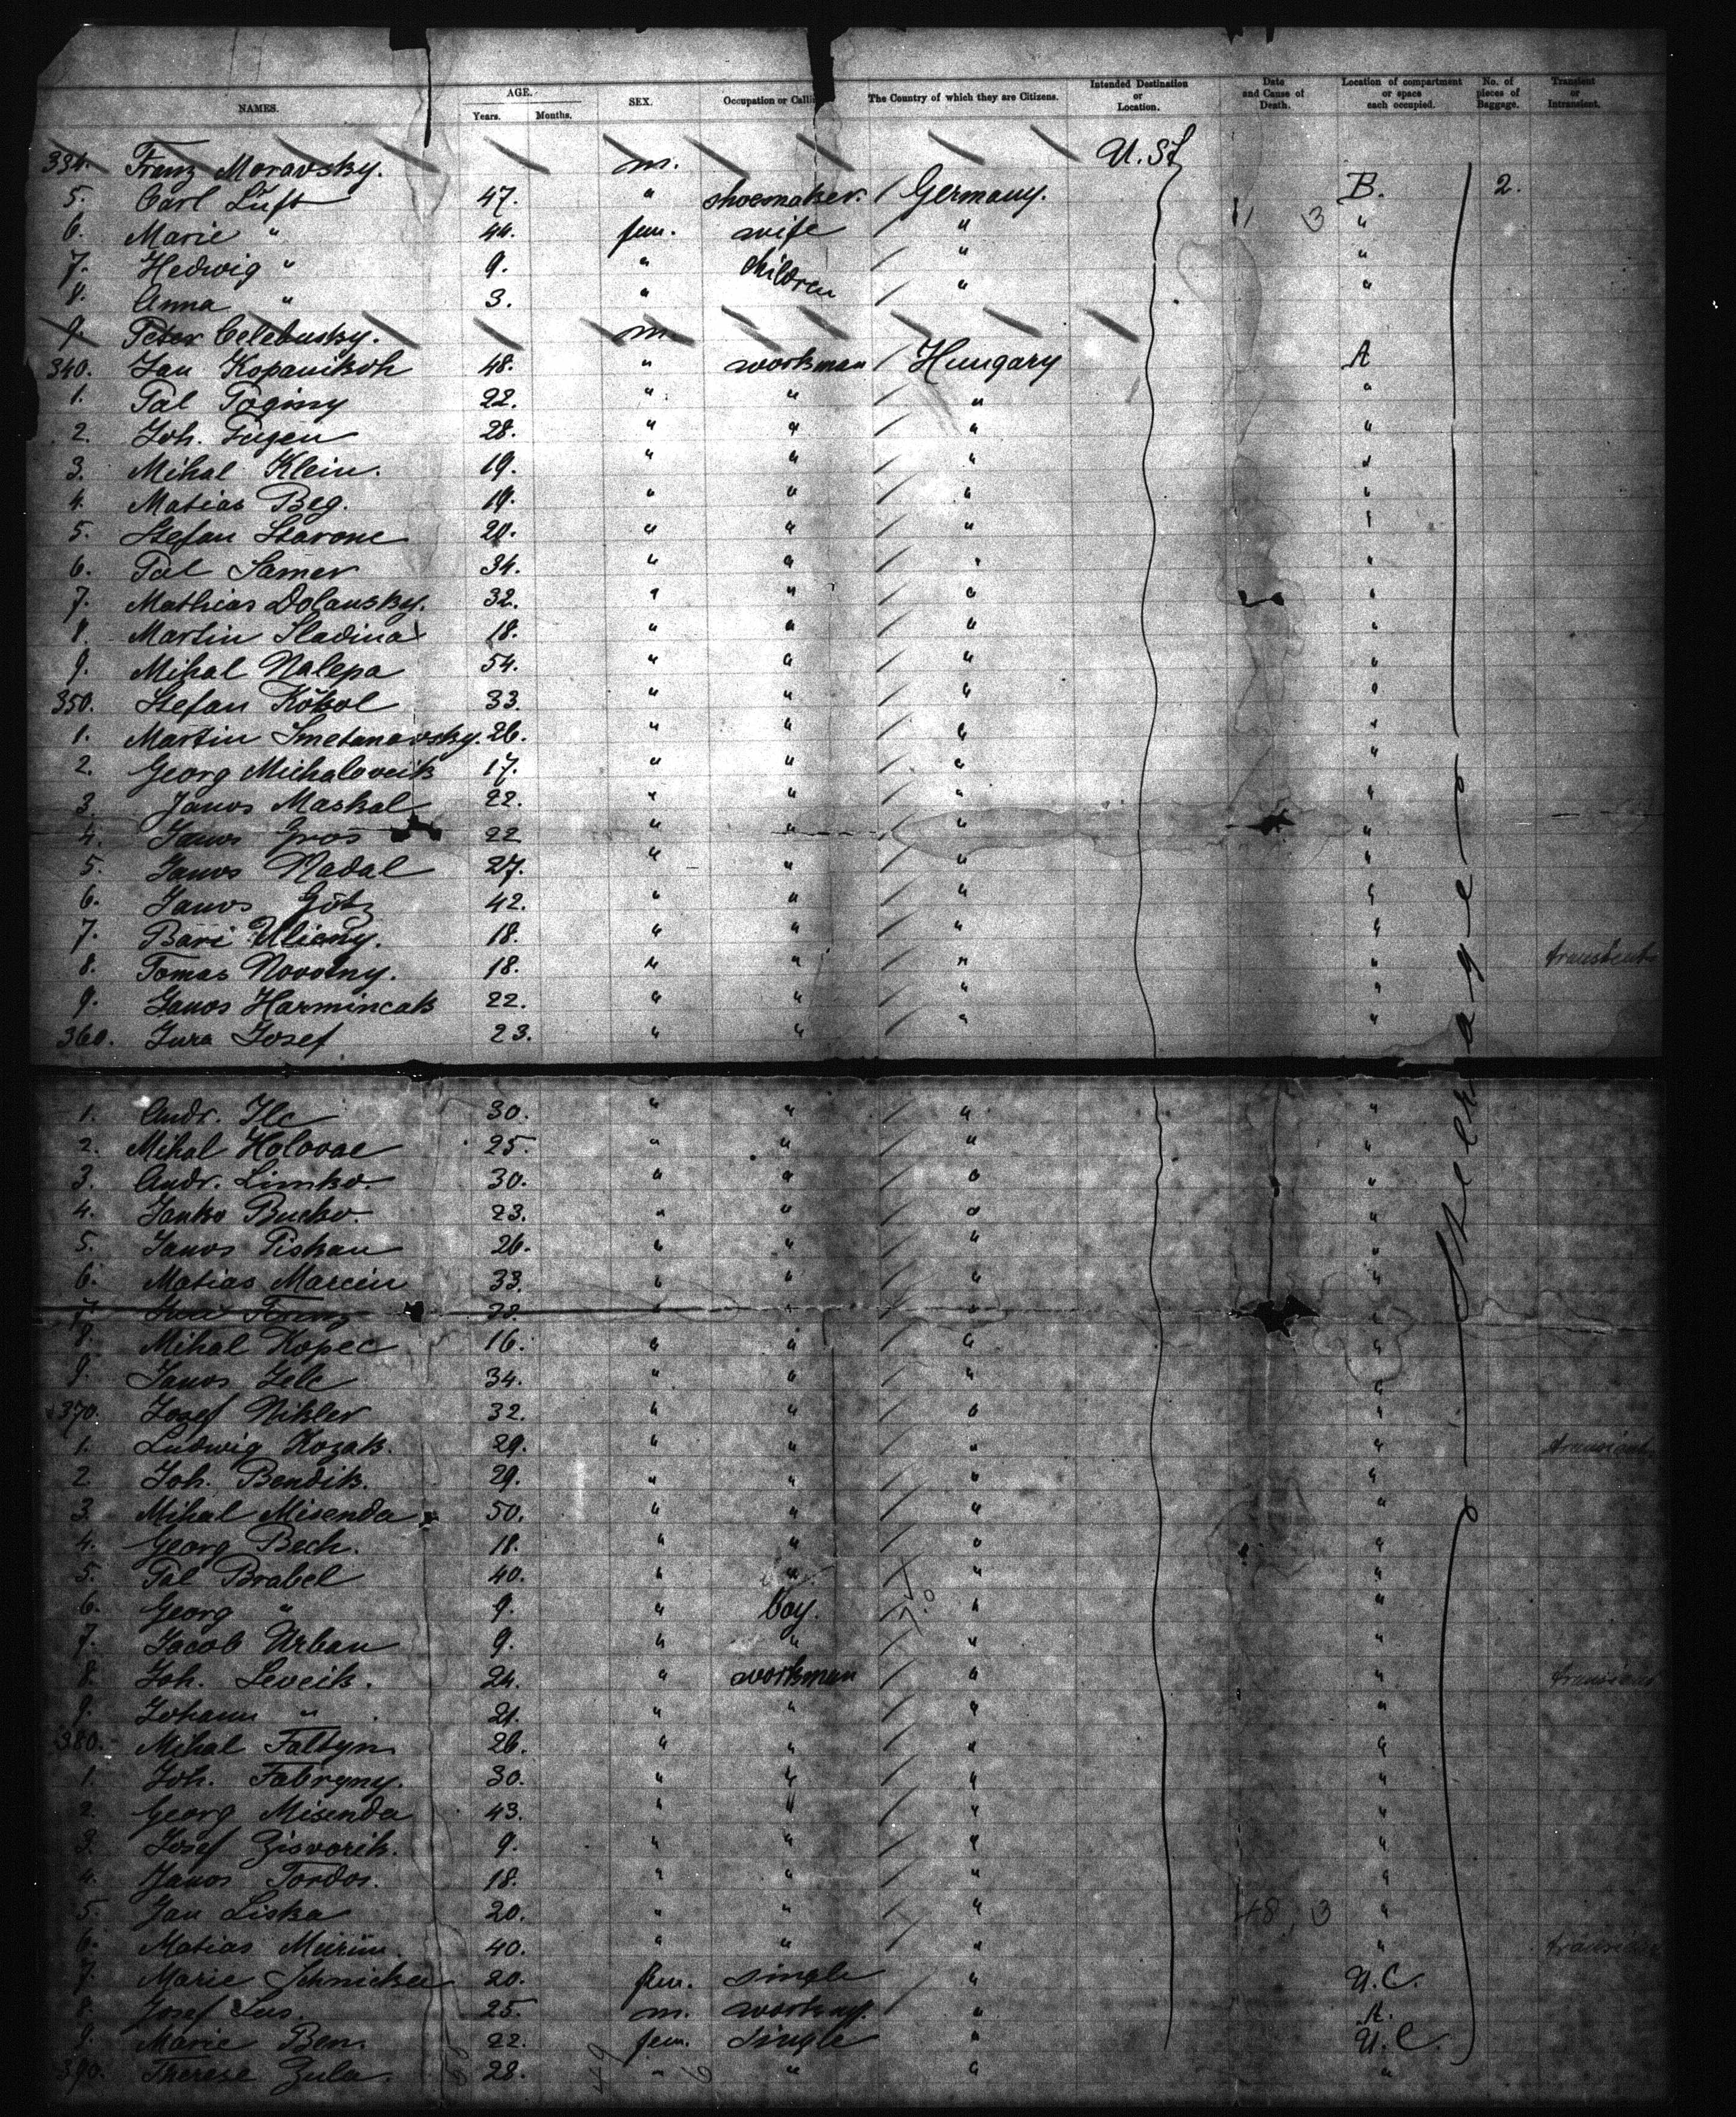 NAMES. AGE. Years. Months. SEX. Occupation or Calli The Country of which they are Citizens. Intended Destination or Location. Date and Cause of Death. Location of compartment or space each occupied. No. of pieces of Baggage. Transient or Intransient.
334. Franz Moravsky. m. U. St
5. Carl Luft 47. " shoemaker. / Germany. B. 2.
6. Marie " 44. fem. wife / " "
7. Hedwig " 9. " children / " "
8. Anna " 3. " / " "
9. Peter Celebusky. m.
340. Jan Kopanikoh 48. " workman / Hungary A
1. Pal Toginy 22. " " / " "
2. Joh. Fugen 28. " " / " "
3. Mihal Klein. 19. " " / " "
4. Matias Beg. 19. " " / " "
5. Stefan Starone 20. " " / " "
6. Pal Samer 34. " " / " "
7. Mathias Dolansky. 32. " " / " "
8. Martin Sladina 18. " " / " "
9. Mihal Nalepa 54. " " / " "
350. Stefan Kokol 33. " " / " "
1. Martin Smetanavsky. 26. " " / " "
2. Georg Michalovcik 17. " " / " "
3. Janos Maskal 22. " " / " "
4. Janos Gros 22 " " / " "
5. Janos Nadal 27. " " / " "
6. Janos Götz 42. " " / " "
7. Bari Ulieny. 18. " " / " "
8. Tomas Novotny. 18. " " / " "
9. Janos Harmincak 22. " " / " "
360. Jura Josef 23. " " / " "
1. Andr. Ilc 30. " " / " "
2. Mihal Holovae 25. " " / " "
3. Andr. Limko. 30. " " / " "
4. Janko Bucko. 23. " " / " "
5. Janos Piskau 26. " " / " "
6. Matias Marcin 33. " " / " "
7.
8. Mihal Kopec 16. " " / " "
9. Janos Zele 34. " " / " "
370. Josef Nikler 32. " " / " "
1. Ludwig Kozak. 29. " " / " " transient
2 Joh. Bendik. 29. " " / " "
3. Mihal Misenda 50. " " / " "
4. Georg Bech. 18. " " / " "
5. Pal Brabel 40. " " / " "
6. Georg " 9. " boy. / " "
7. Jacob Urban 9. " " / " "
8. Joh. Leveik. 24. " workman / " " transient
9. Johann " 21. " " / " "
380. Mihal Faltyn 26. " " / " "
1. Joh. Fabryny. 30. " " / " "
2. Georg Misenda 43. " " / " "
3. Josef Zisvorik. 9. " " / " "
4. Janos Tordos. 18. " " / " "
5. Jan Liska 20. " " / " "
6. Matias 40. " " / " "
7. Marie Schnicka 20. fem. single / " U.C.
8. Josef Lus. 25. m. / " A.
9. Marie Ben. 22. fem. single / " U.C.
390. Therese Zula. 28. " " " "
Steerage